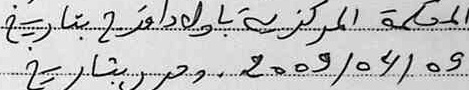 المحكمة المركزية باولاد افرج بتاريخ
2009/04/09 . وحرر بتاريخ